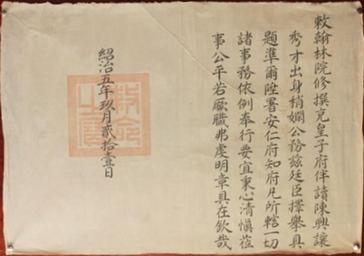 敕翰林院修撰充皇子府伴讀陳興讓
秀才出身稍嫺公務茲廷臣擇舉具
題準爾陞署安仁府知府凡所轄一切
諸事務依例奉行要宜秉心清慎蒞
事公平若厥職弗虔明章具在欽哉
紹治五年玖月貳拾壹日